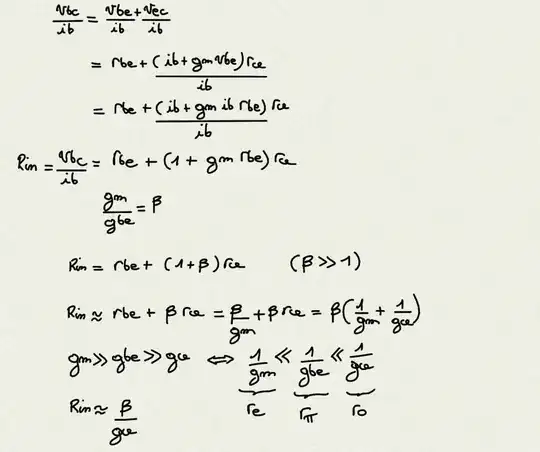 vbc/ib = vbe/ib + vec/ib
= rbe + (ib + gm vbe) rce / ib
= rbe + (ib + gm ib rbe) rce / ib
Rin = vbc/ib = rbe + (1 + gm rbe) rce
gm/gbe = β
Rin = rbe + (1+β) rce (β ≫ 1)
Rin ≈ rbe + β rce = β/gm + β rce = β(1/gm + 1/gce)
gm ≫ gbe ≫ gce ⇔ 1/gm ≪ 1/gbe ≪ 1/gce
re rπ ro
Rin ≈ β/gce